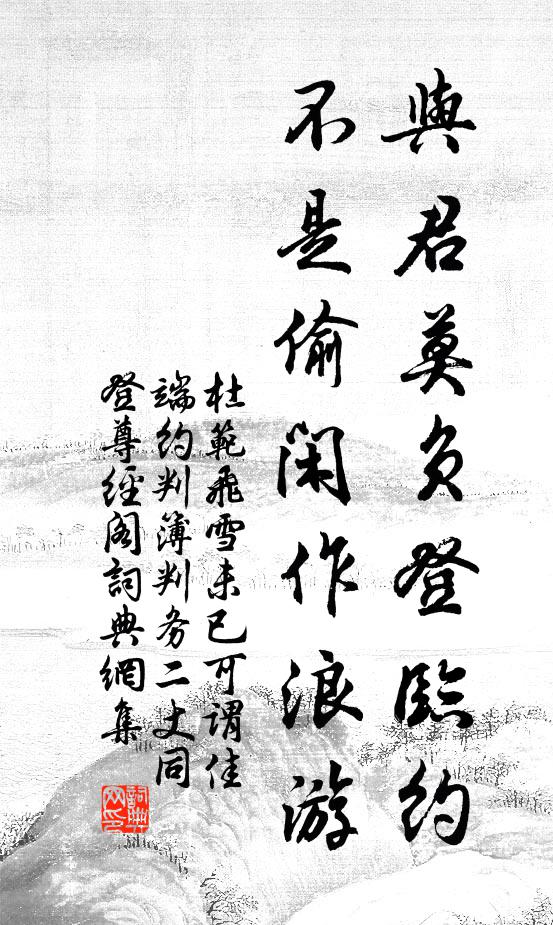 與君莫負登臨約
不是偷閑作浪游
杜範飛雪未已可謂佳
端約判簿判务二丈同
登尊經阁詞典網集